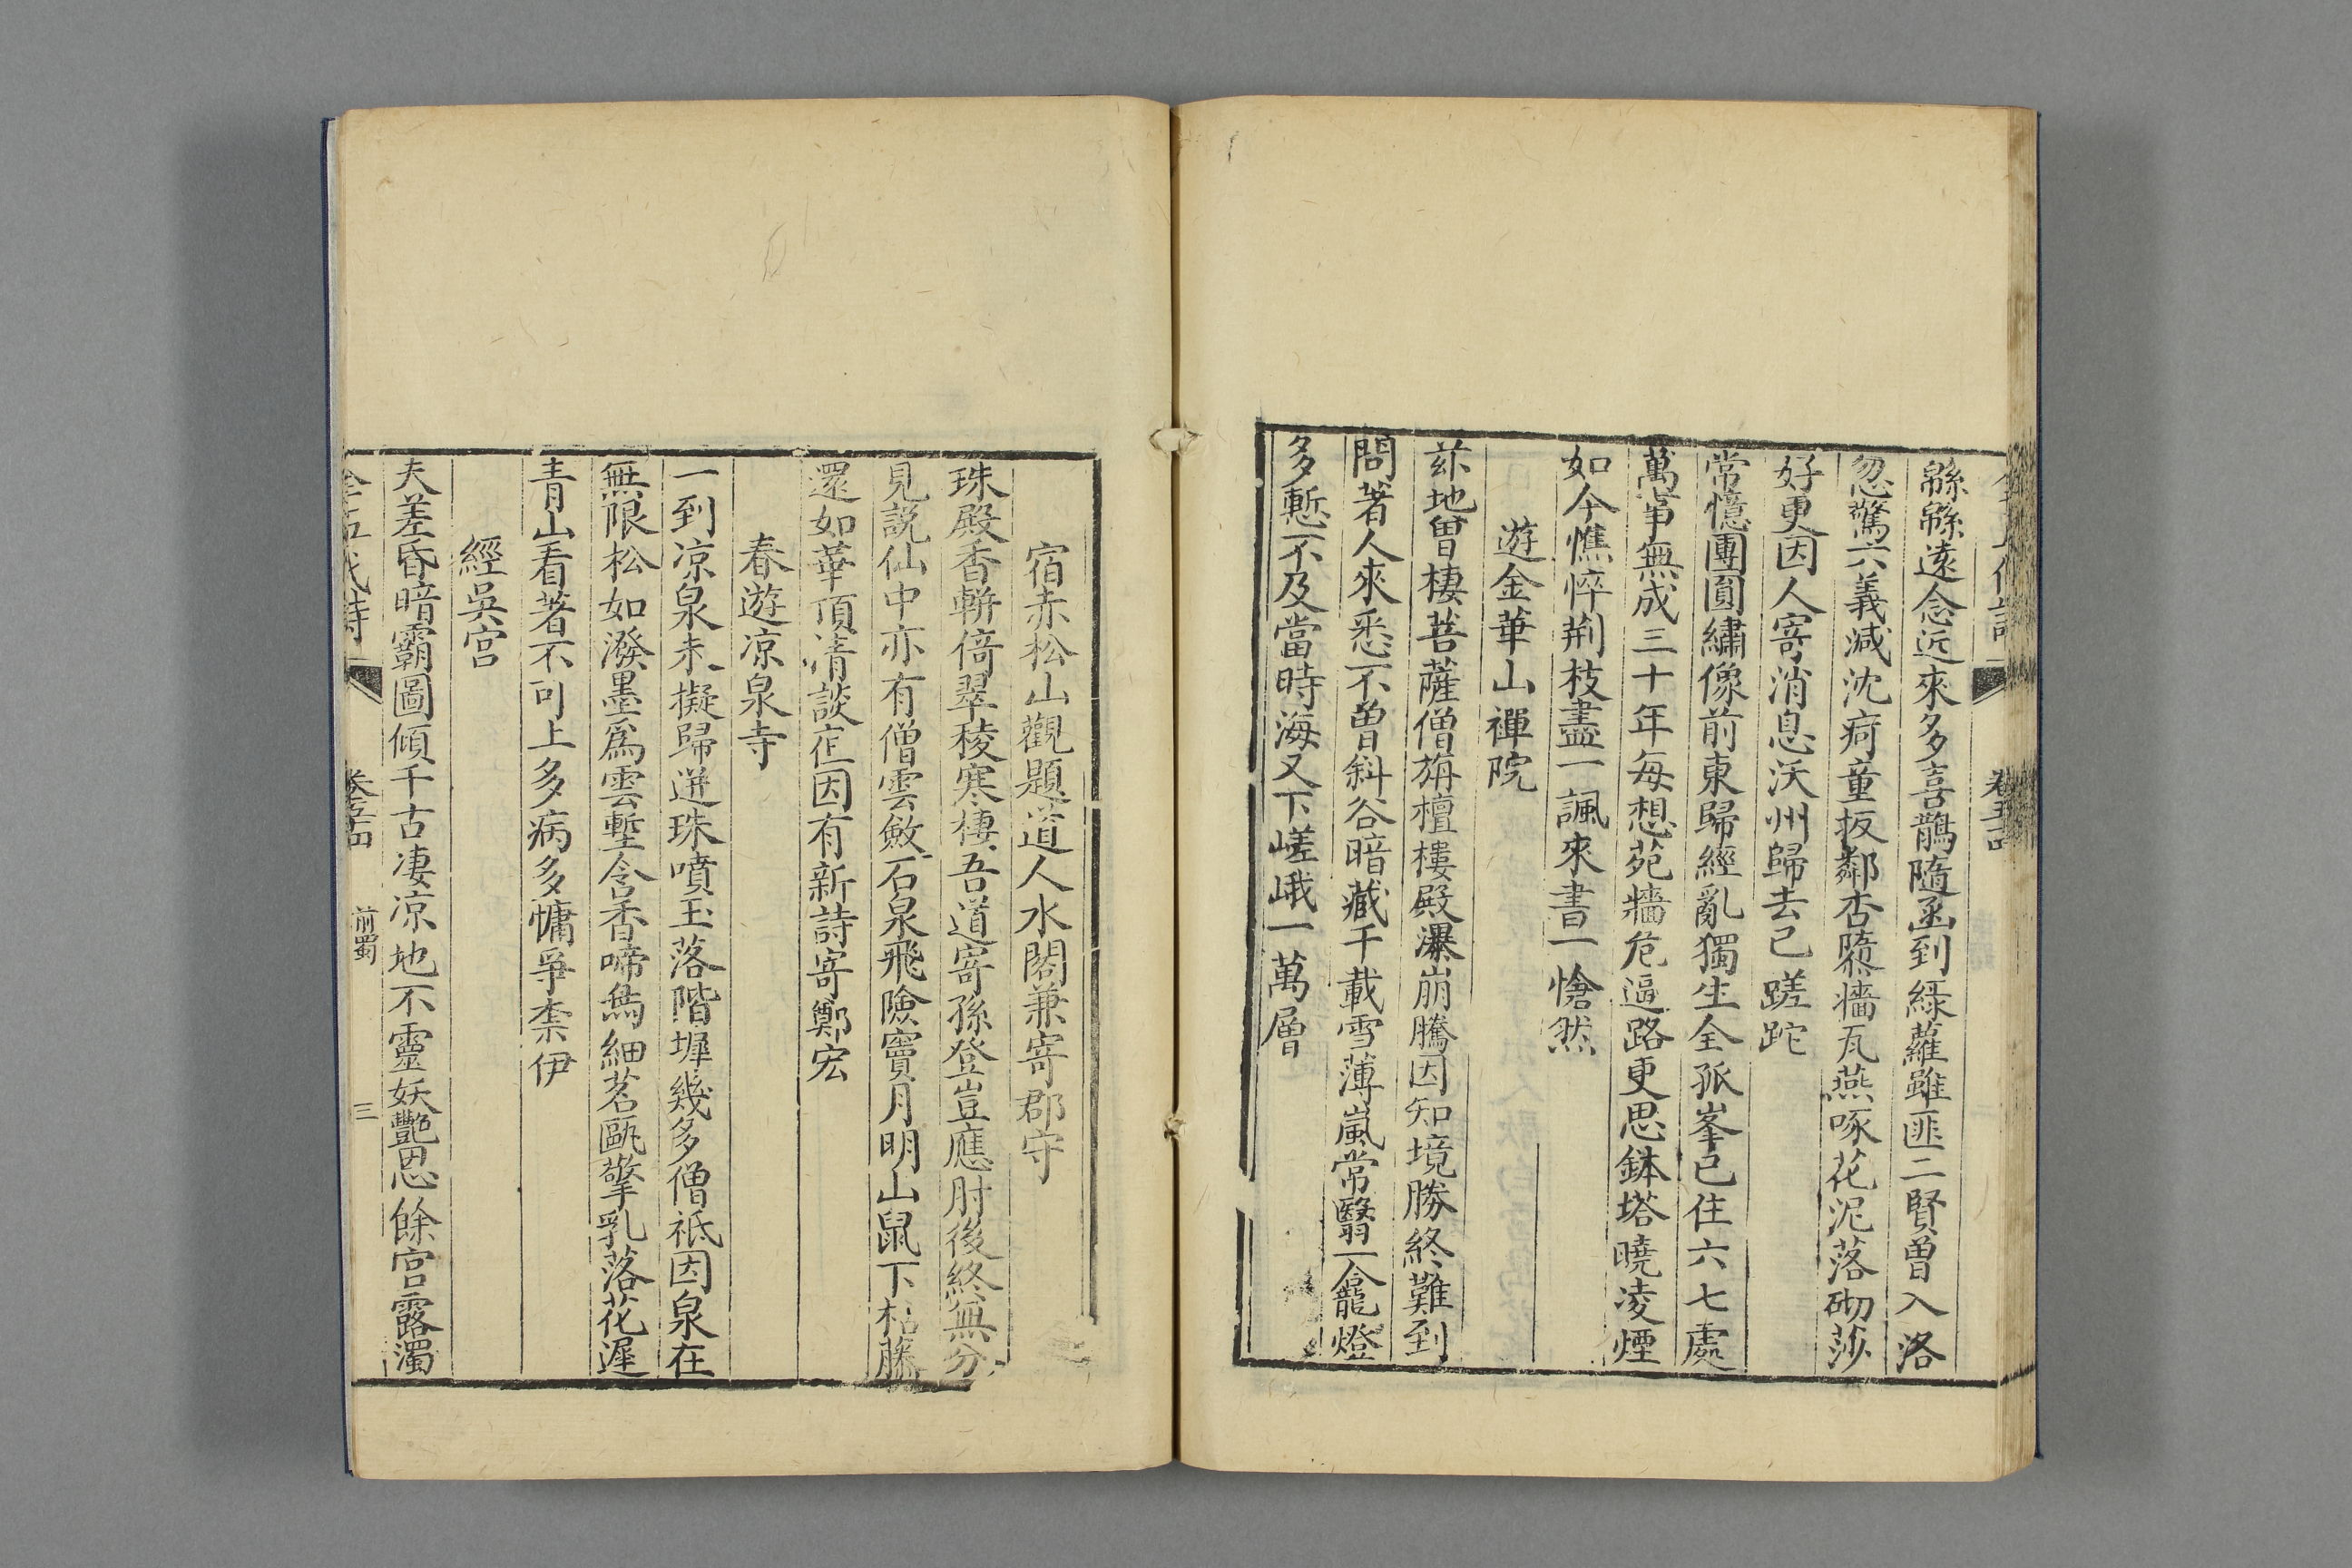 緜緜遠念近來多喜鵲隨函到綠蘿雖匪二賢曾入洛
忽驚六義減沈疴童扳鄰杏隳牆瓦燕啄花泥落砌莎
好更因人寄消息沃州歸去已蹉跎
常憶團圓繡像前東歸經亂獨生全孤峯已住六七處
萬事無成三十年每想苑牆危逼路更思鉢塔曉凌煙
如今憔悴荆枝盡一諷來書一愴然
遊金華山禪院
茲地曾棲菩薩僧旃檀樓殿瀑崩騰因知境勝終難到
問著人來悉不曾斜谷暗藏千載雪薄嵐常翳一龕燈
多慙不及當時海又下嵯峨一萬層
宿赤松山觀題道人水閣兼寄郡守
珠殿香輧倚翠稜寒棲吾道寄孫登豈應肘後終無分
見説仙中亦有僧雲斂石泉飛險竇月明山鼠下枯藤
還如華頂清談㝎因有新詩寄鄭宏
春遊凉泉寺
一到凉泉未擬歸迸珠噴玉落階墀幾多僧祗因泉在
無限松如潑墨爲雲塹含香啼鳥細茗甌擎乳落花遲
青山看著不可上多病多慵爭柰伊
經吳宮
夫差昏暗霸圖傾千古凄凉地不靈妖艷恩餘宮露濁
全五代詩 卷五十四 前蜀 三